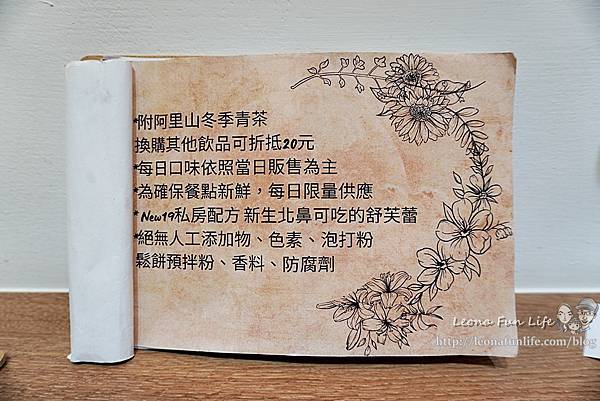 *附阿里山冬季青茶
換購其他飲品可折抵20元
*每日口味依照當日販售為主
*為確保餐點新鮮，每日限量供應
*New19私房配方 新生北鼻可吃的舒芙蕾
*絕無人工添加物、色素、泡打粉
鬆餅預拌粉、香料、防腐劑
Leona Fun Life
http://leonafunlife.com/blog